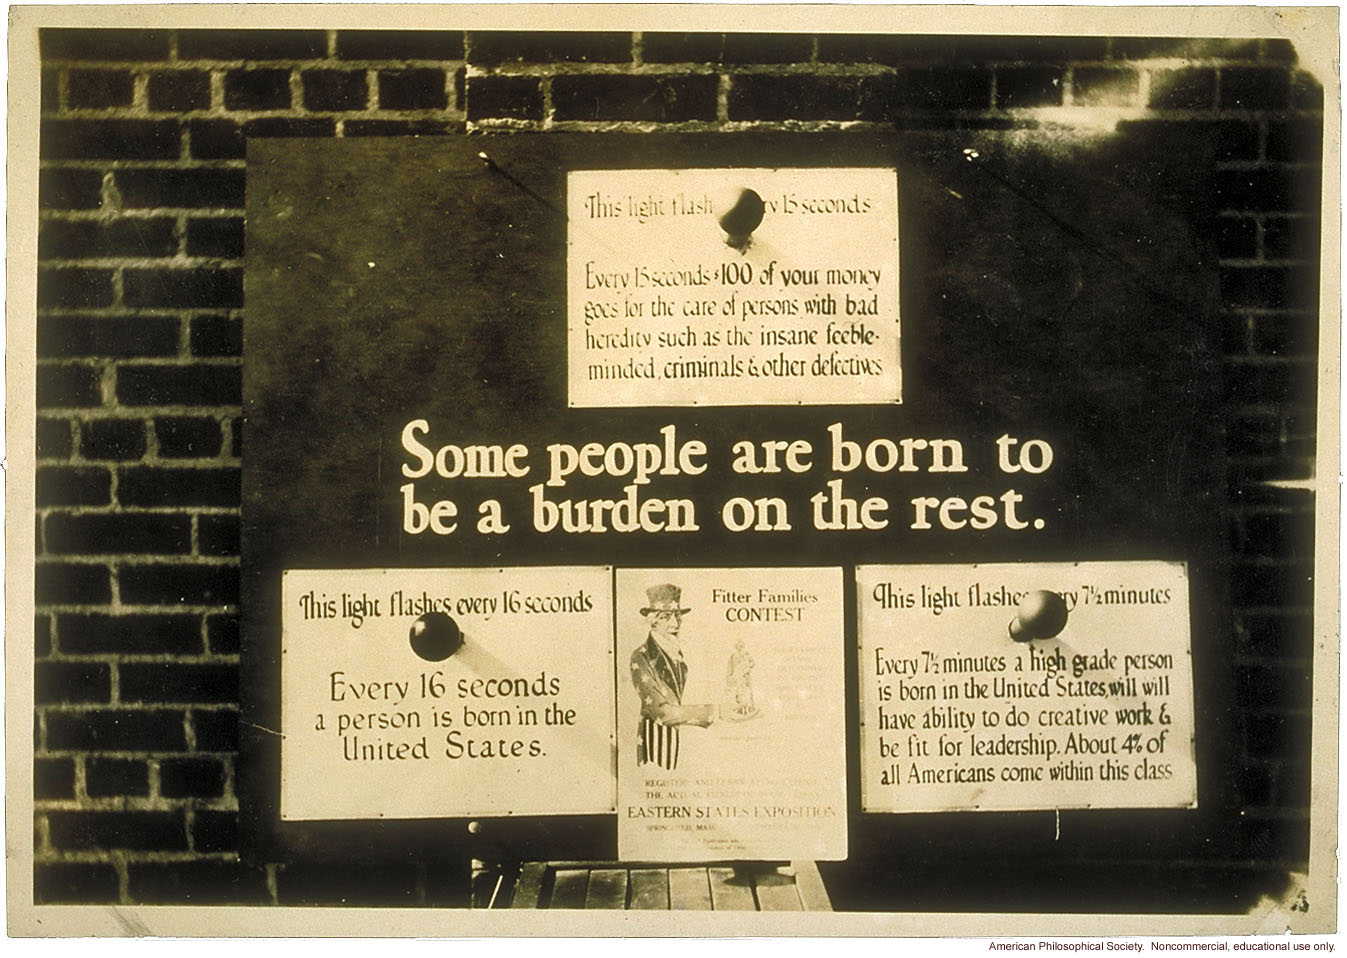 This light flash ry 15 seconds
Every 15 seconds $100 of your money
goes for the care of persons with bad
heredity such as the insane feeble-
minded, criminals & other defectives
Some people are born to
be a burden on the rest.
This light flashes every 16 seconds
Every 16 seconds
a person is born in the
United States.
Fitter Families
CONTEST
EASTERN STATES EXPOSITION
SPRINGFIELD, MASS.
This light flashes ry 7½ minutes
Every 7½ minutes a high grade person
is born in the United States, will will
have ability to do creative work &
be fit for leadership. About 4% of
all Americans come within this class
American Philosophical Society. Noncommercial, educational use only.